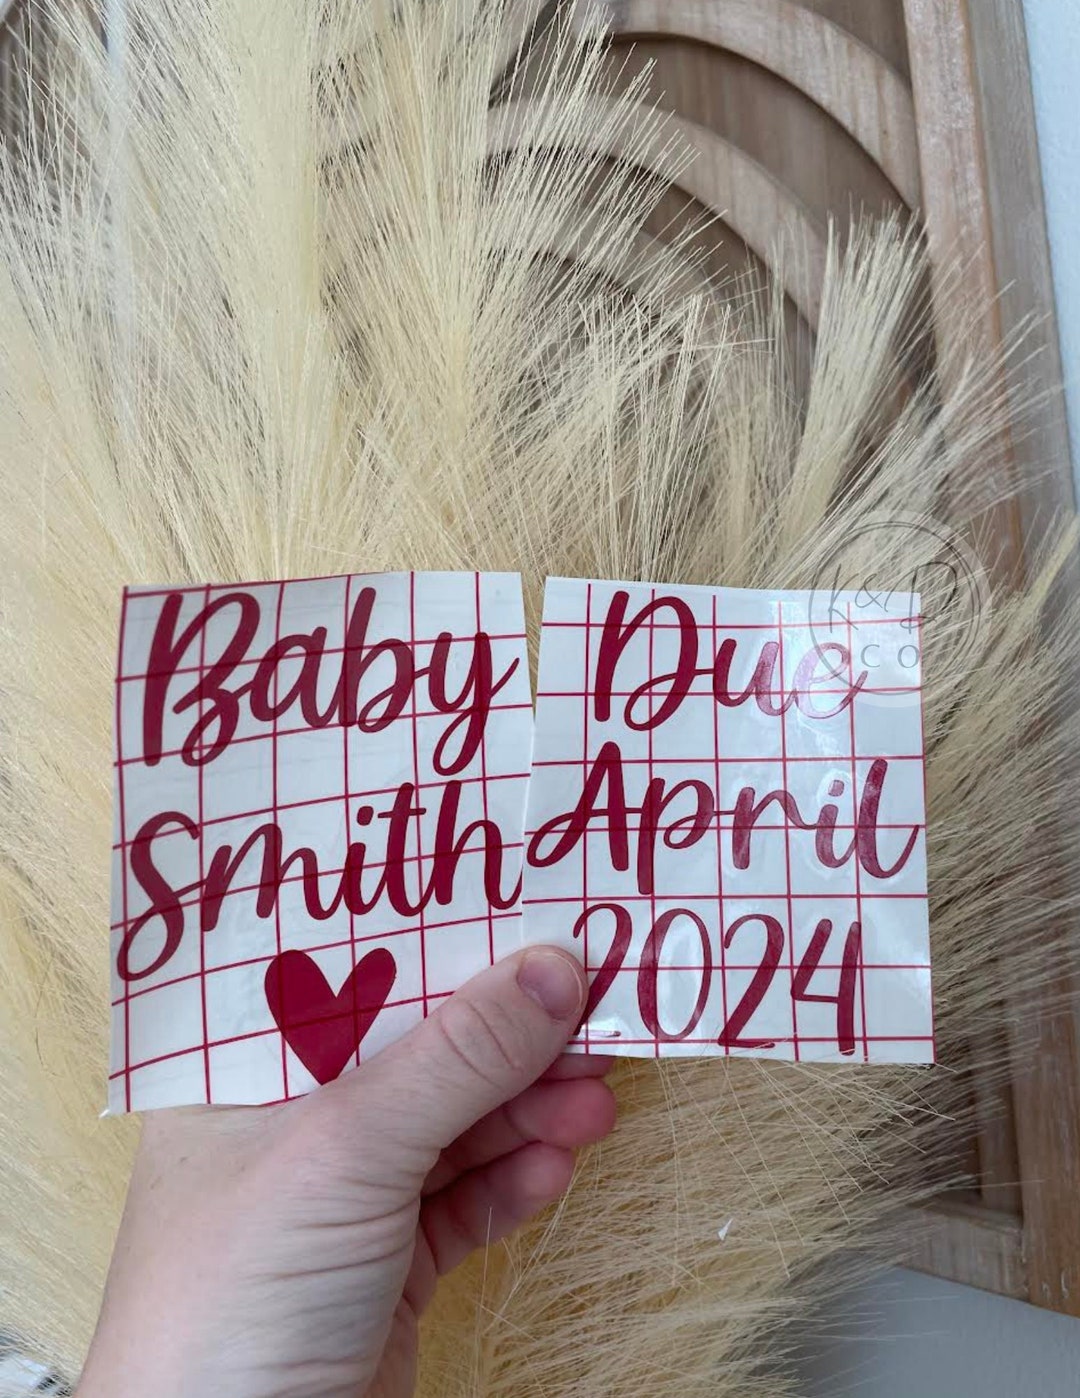 Baby
Smith
Due
April
2024
K&D
CO